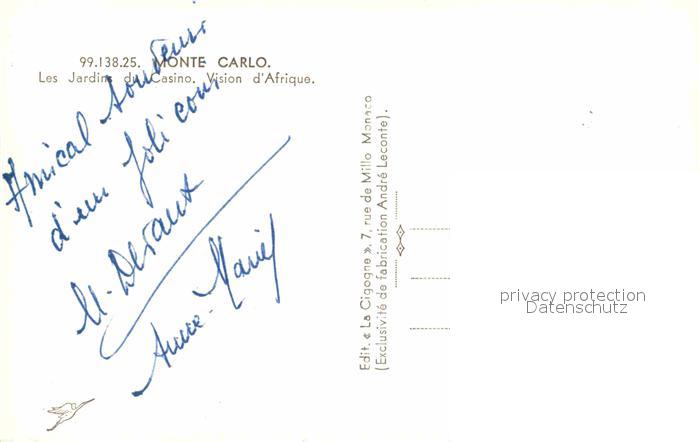 99.138.25. MONTE CARLO.
Les Jardins du Casino. Vision d'Afrique.
Amical souvenir
d'un joli coin,
Anne-Marie
Edit. « La Cigogne », 7, rue de Millo Monaco
(Exclusivité de fabrication André Leconte).
privacy protection
Datenschutz